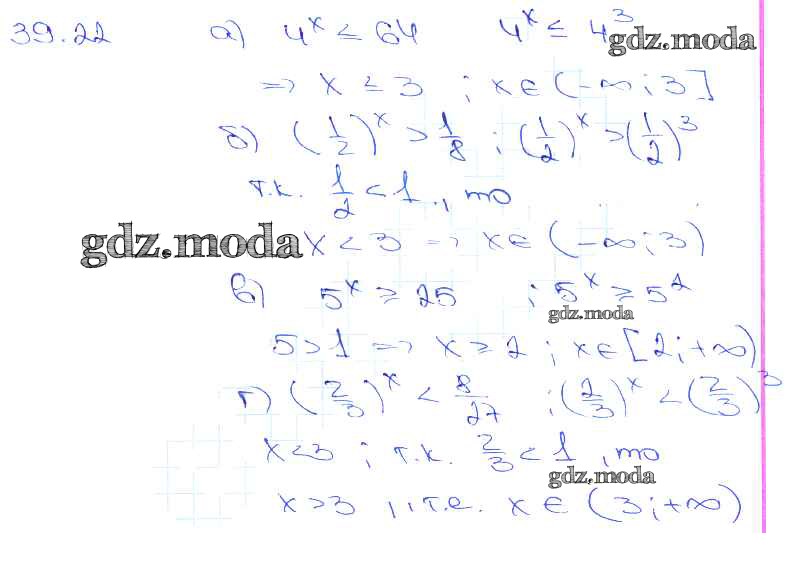 39.22 а) 4^x ≤ 64 4^x ≤ 4^3
gdz.moda
=> x ≤ 3 ; x ∈ (-∞; 3]
б) (1/2)^x > 1/8 ; (1/2)^x > (1/2)^3
т.к. 1/2 < 1, то
gdz.moda x < 3 => x ∈ (-∞; 3)
в) 5^x ≥ 25 ; 5^x ≥ 5^2
gdz.moda
5 > 1 => x ≥ 2 ; x ∈ [2; +∞)
г) (2/3)^x < 8/27 ; (2/3)^x < (2/3)^3
x < 3 ; т.к. 2/3 < 1, то
gdz.moda
x > 3 , т.е. x ∈ (3; +∞)